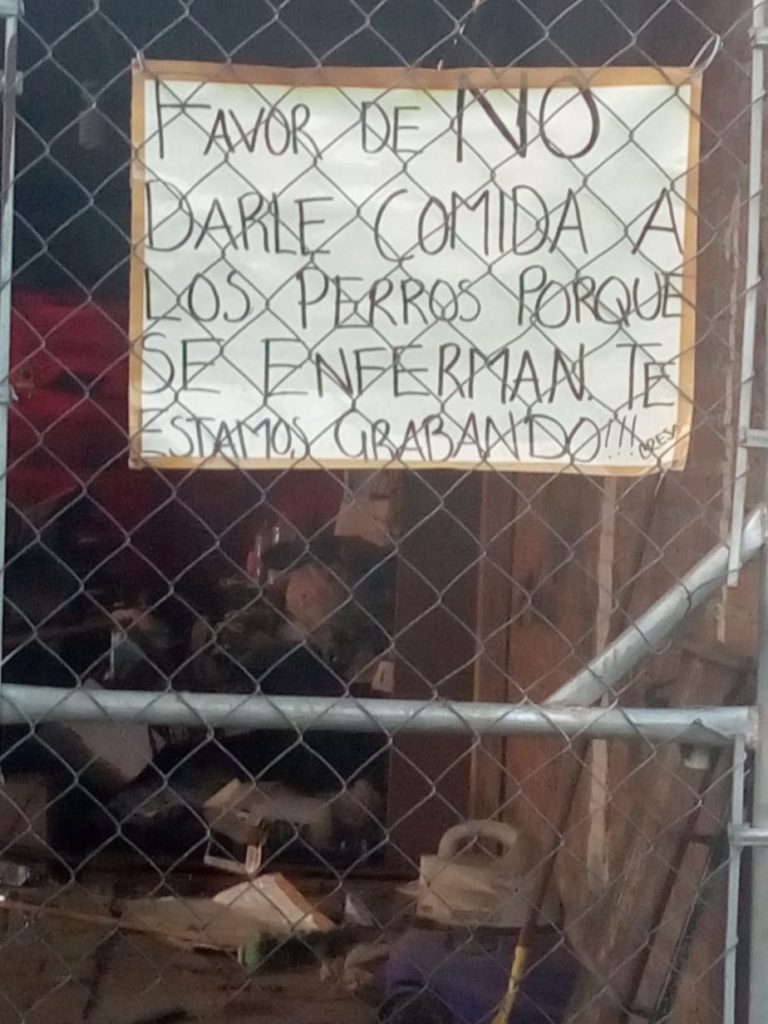 FAVOR DE NO
DARLE COMIDA A
LOS PERROS PORQUE
SE ENFERMAN. TE
ESTAMOS GRABANDO!!!